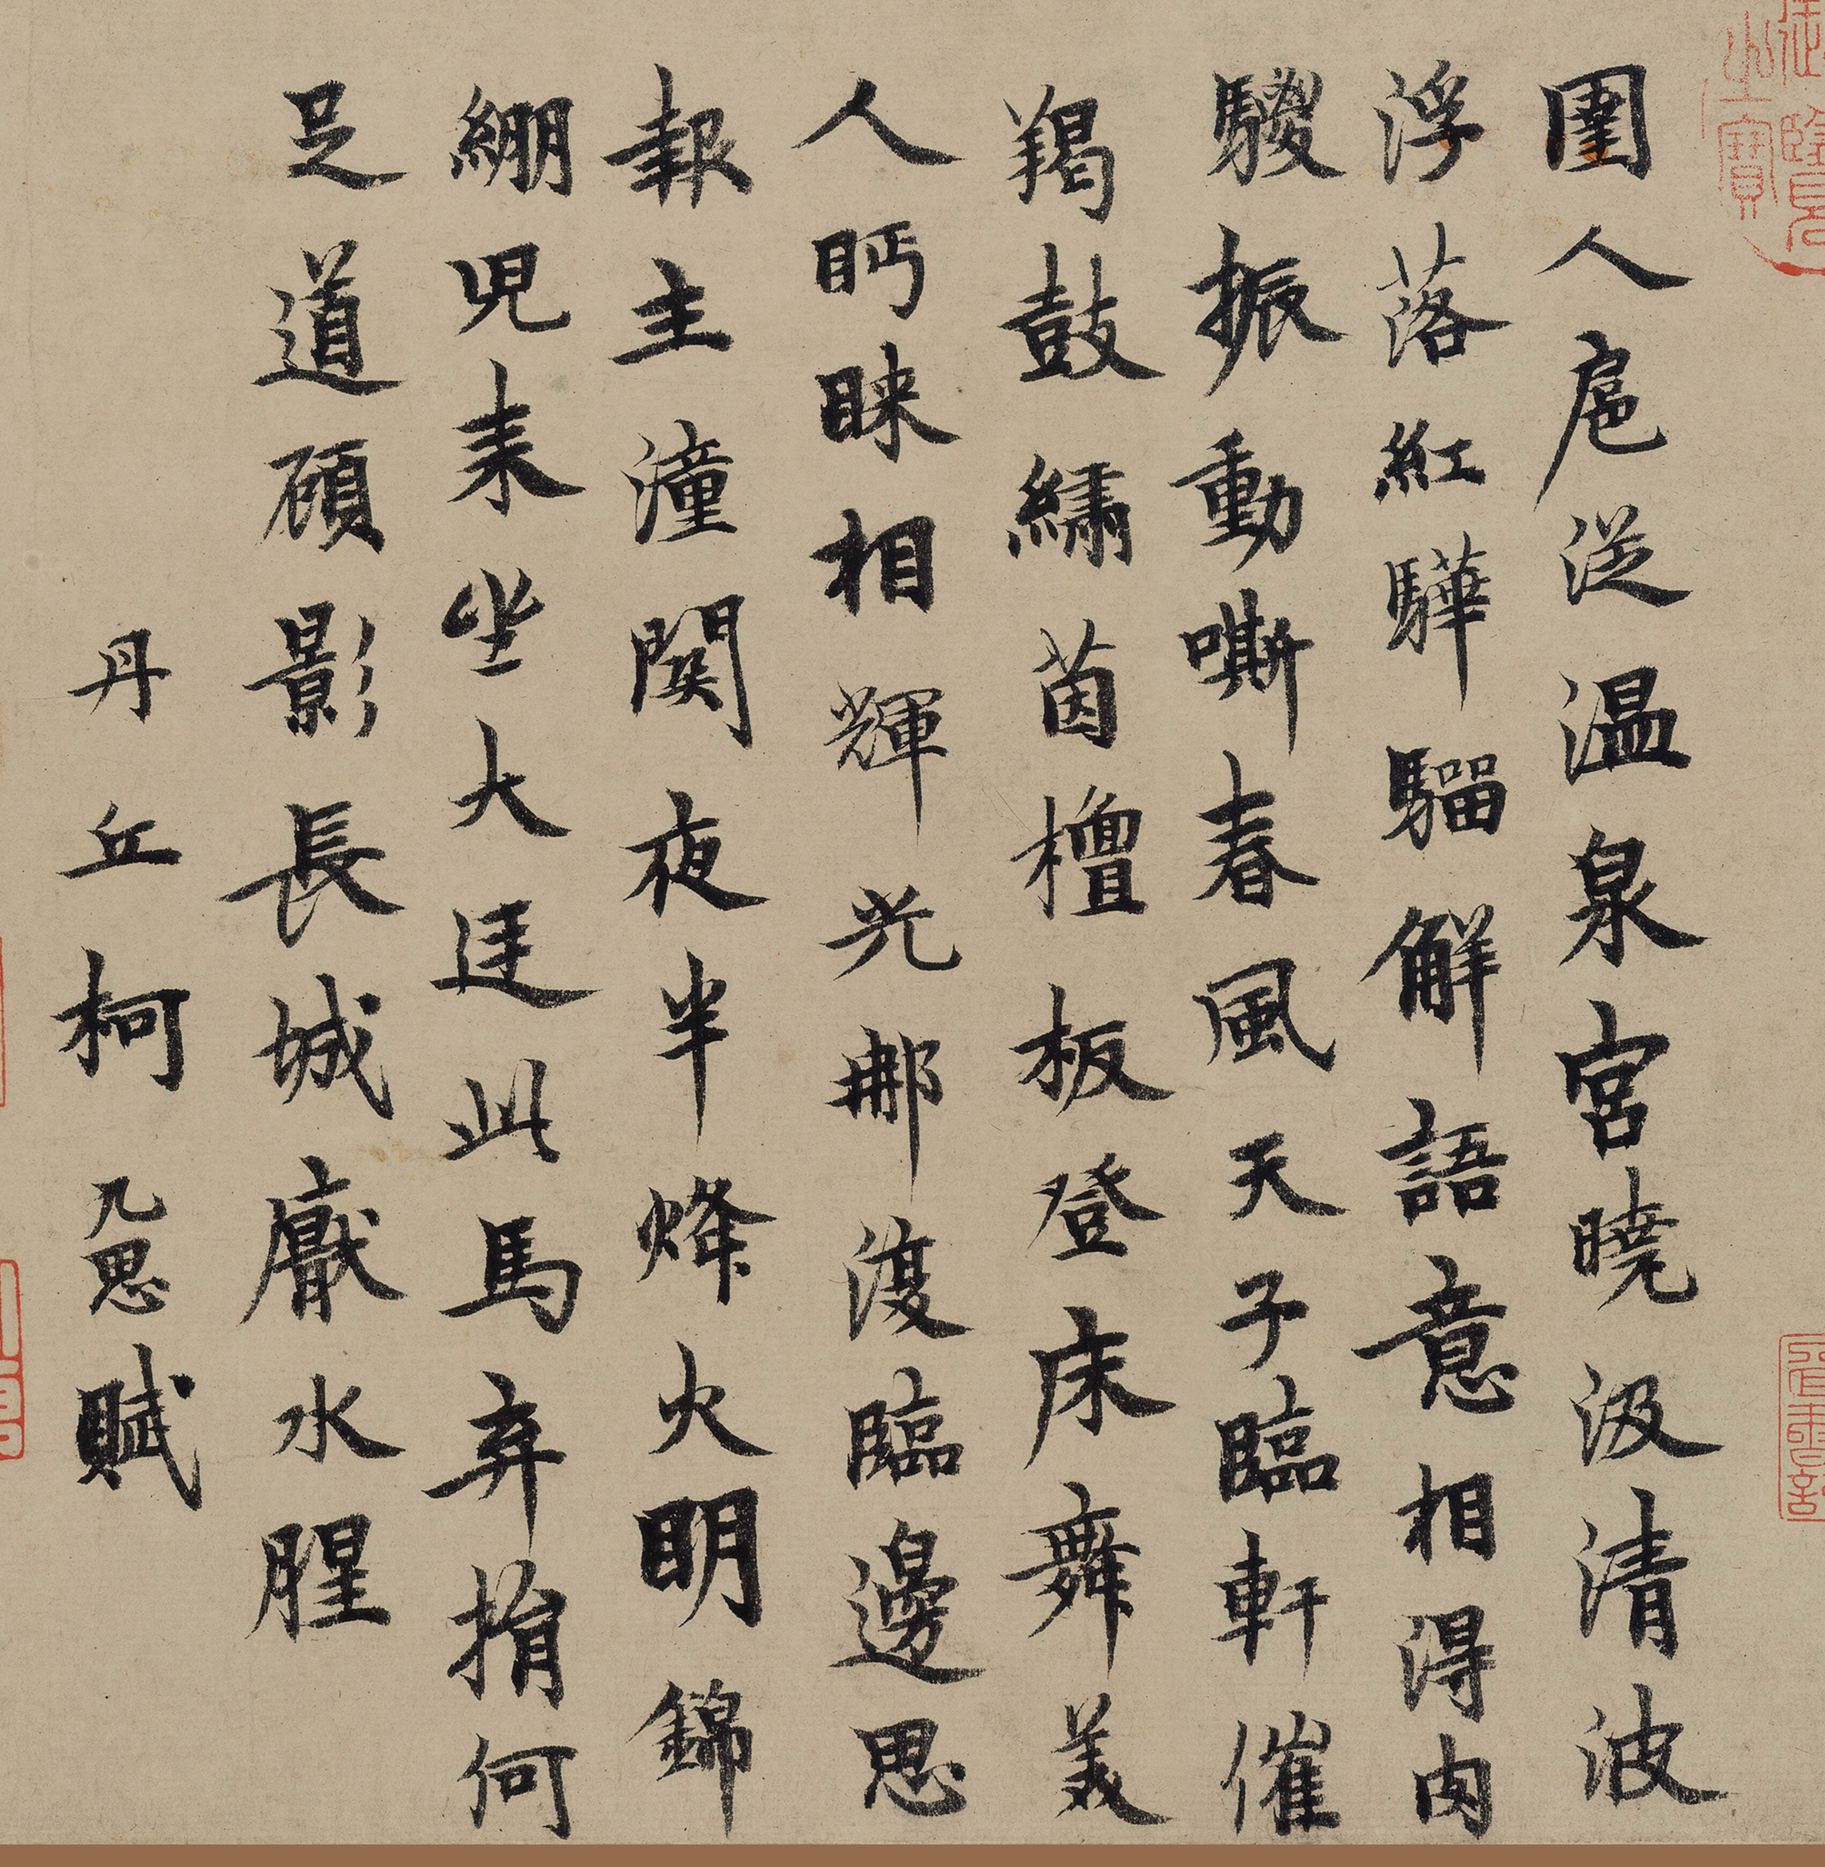 圉人扈從温泉宮曉汲清波
浮落紅驊騮解語意相得肉
騣振動嘶春風天子臨軒催
羯鼓繡茵檀板登床舞美
人眄睞相輝光那復臨邊思
報主潼関夜半烽火明錦
綳兒來坐大廷此馬弃捐何
足道顧影長城厭水腥
丹丘柯九思賦